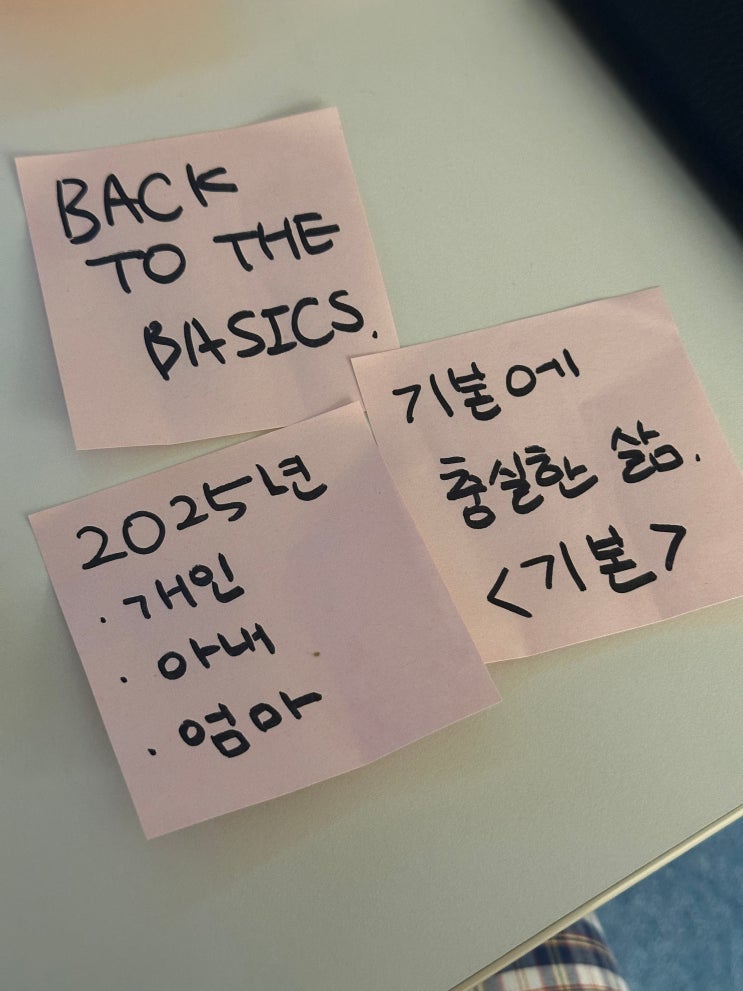 BACK
TO THE
BASICS.
기본에
충실한 삶.
<기본>
2025년
· 개인
· 아내
· 엄마